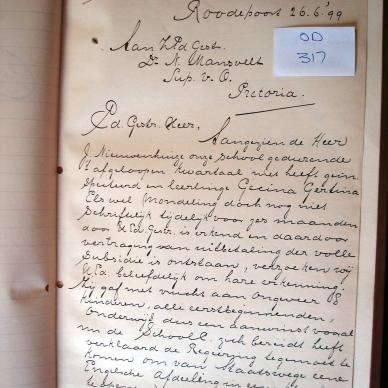 Roodepoort 26.6.'99
OD
317
Aan ZEd. Gestr.
Dr. N. Mansvelt
Sup. v. O.
Pretoria.
Ed. Gestr. Heer,
Aangezien de Heer
J. Nieuwenhuize onze school gedurende
't afgeloopen kwartaal niet heeft geïn-
specteerd en leerlinge Gesina Gertina
Els wel mondeling doch nog niet
schriftelijk tijdelijk voor zes maanden
door U Ed. Gestr. is erkend en daardoor
vertraging van uitbetaling der volle
subsidie is ontstaan, verzoeken wij
U Ed. beleefdelijk om hare erkenning.
Zij gaf met vrucht aan ongeveer 18
kinderen, alle eerstbeginnenden,
onderwijs, dus een aanwinst vooral
nu de School zich bereid heeft
verklaard de Regeering tegemoet te
komen om van Staatswege eene
Engelsche Afdeeling in